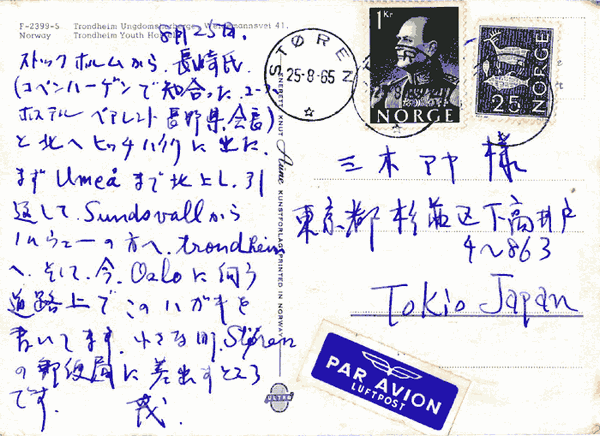 F-2399-5 Trondheim Ungdomsherberge, Weidemannsvei 41.
Norway Trondheim Youth Hostel
8月25日.
ストックホルムから、長崎氏
(コペンハーゲンで知合ったユース
ホステル ペアレント 長野県会長)
と北へヒッチハイクに出た.
まず Umeå まで北上し、引
返して、Sundsvallから
ノルウェーの方へ、trondheim
へ、そして、今、Osloに向う
道路上でこのハガキを
書いてます. 小さな町、Støren
の郵便局に差出すところ
です. 茂.
ENERETT: KNUT Aune KUNSTFORLAG
PRINTED IN NORWAY
ULTRA
STØREN
25-8-65
1 Kr
NORGE
NORGE
25
三木アヤ 様
東京都 杉並区下高井戸
4~863
Tokio Japan
PAR AVION
LUFTPOST